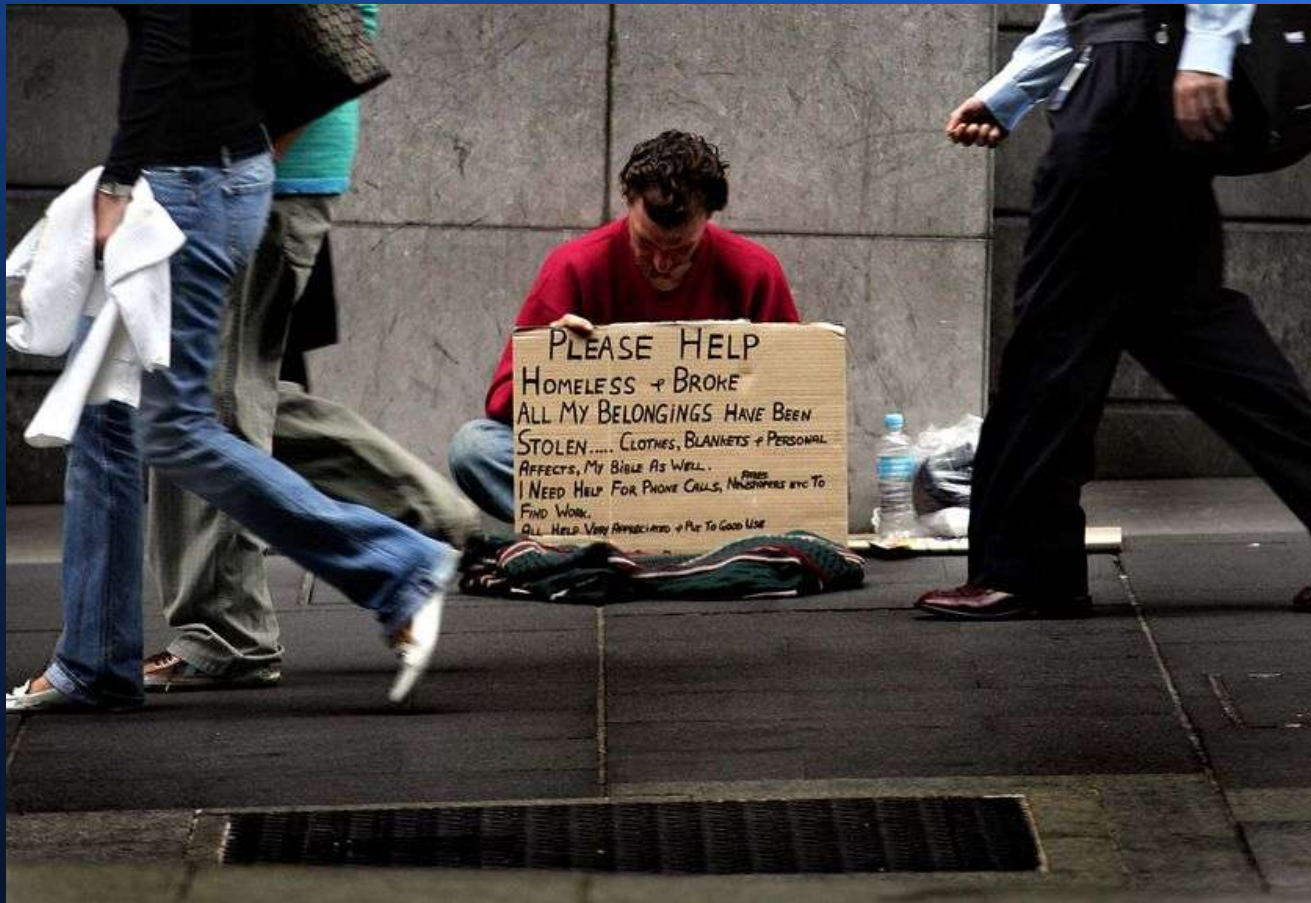 PLEASE HELP
HOMELESS + BROKE
ALL MY BELONGINGS HAVE BEEN
STOLEN..... CLOTHES, BLANKETS + PERSONAL
AFFECTS, MY BIBLE AS WELL.
FARES
I NEED HELP FOR PHONE CALLS, NEWSPAPERS ETC TO
FIND WORK.
ALL HELP VERY APPRECIATED + PUT TO GOOD USE